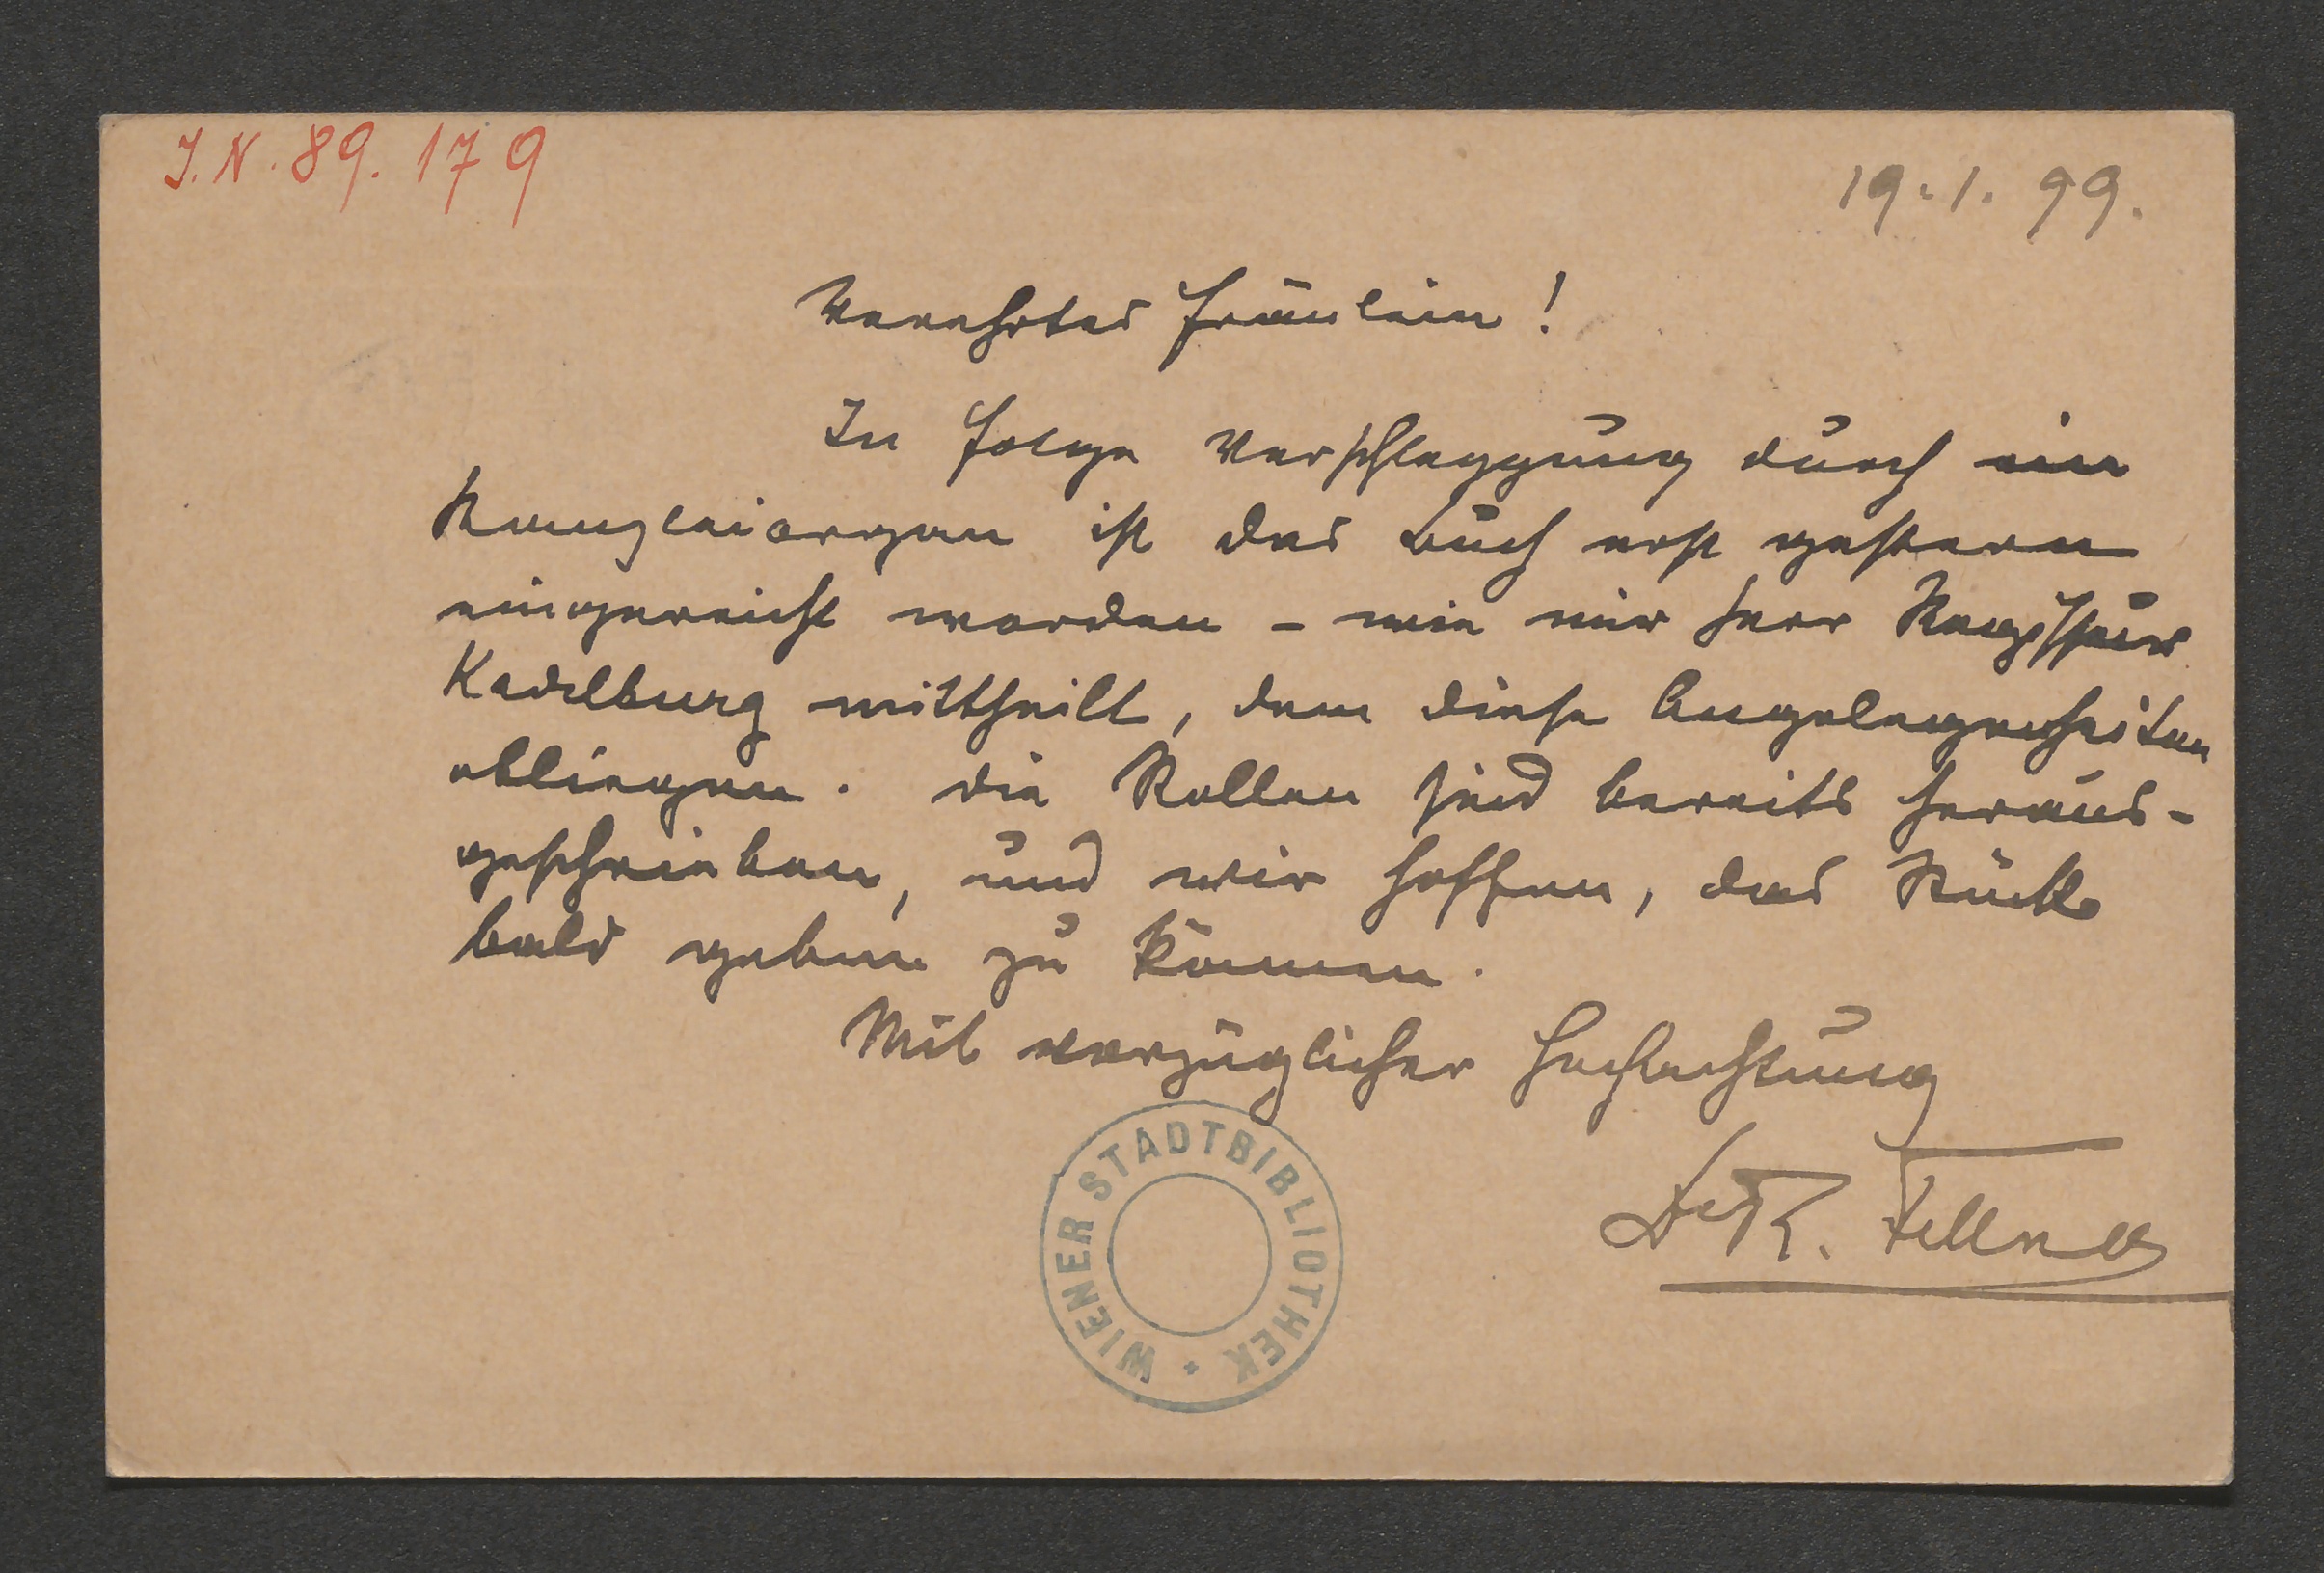 J.N. 89.179
19.1.99.
Verehrtes Fräulein!
In Folge Verschleppung durch ein
Kanzleiorgan ist das Buch erst gestern
eingereicht worden – wie mir Herr Regisseur
Kadelburg mittheilt, dem diese Angelegenheiten
obliegen. Die Rollen sind bereits heraus-
geschrieben, und wir hoffen, das Stück
bald geben zu können.
Mit vorzüglicher Hochachtung
Dr R. Fellner
WIENER STADTBIBLIOTHEK